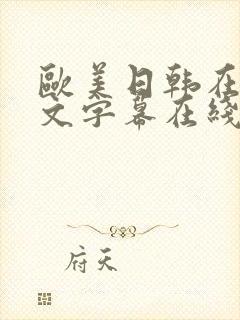 歐美日韩在
文字幕在綫
府天